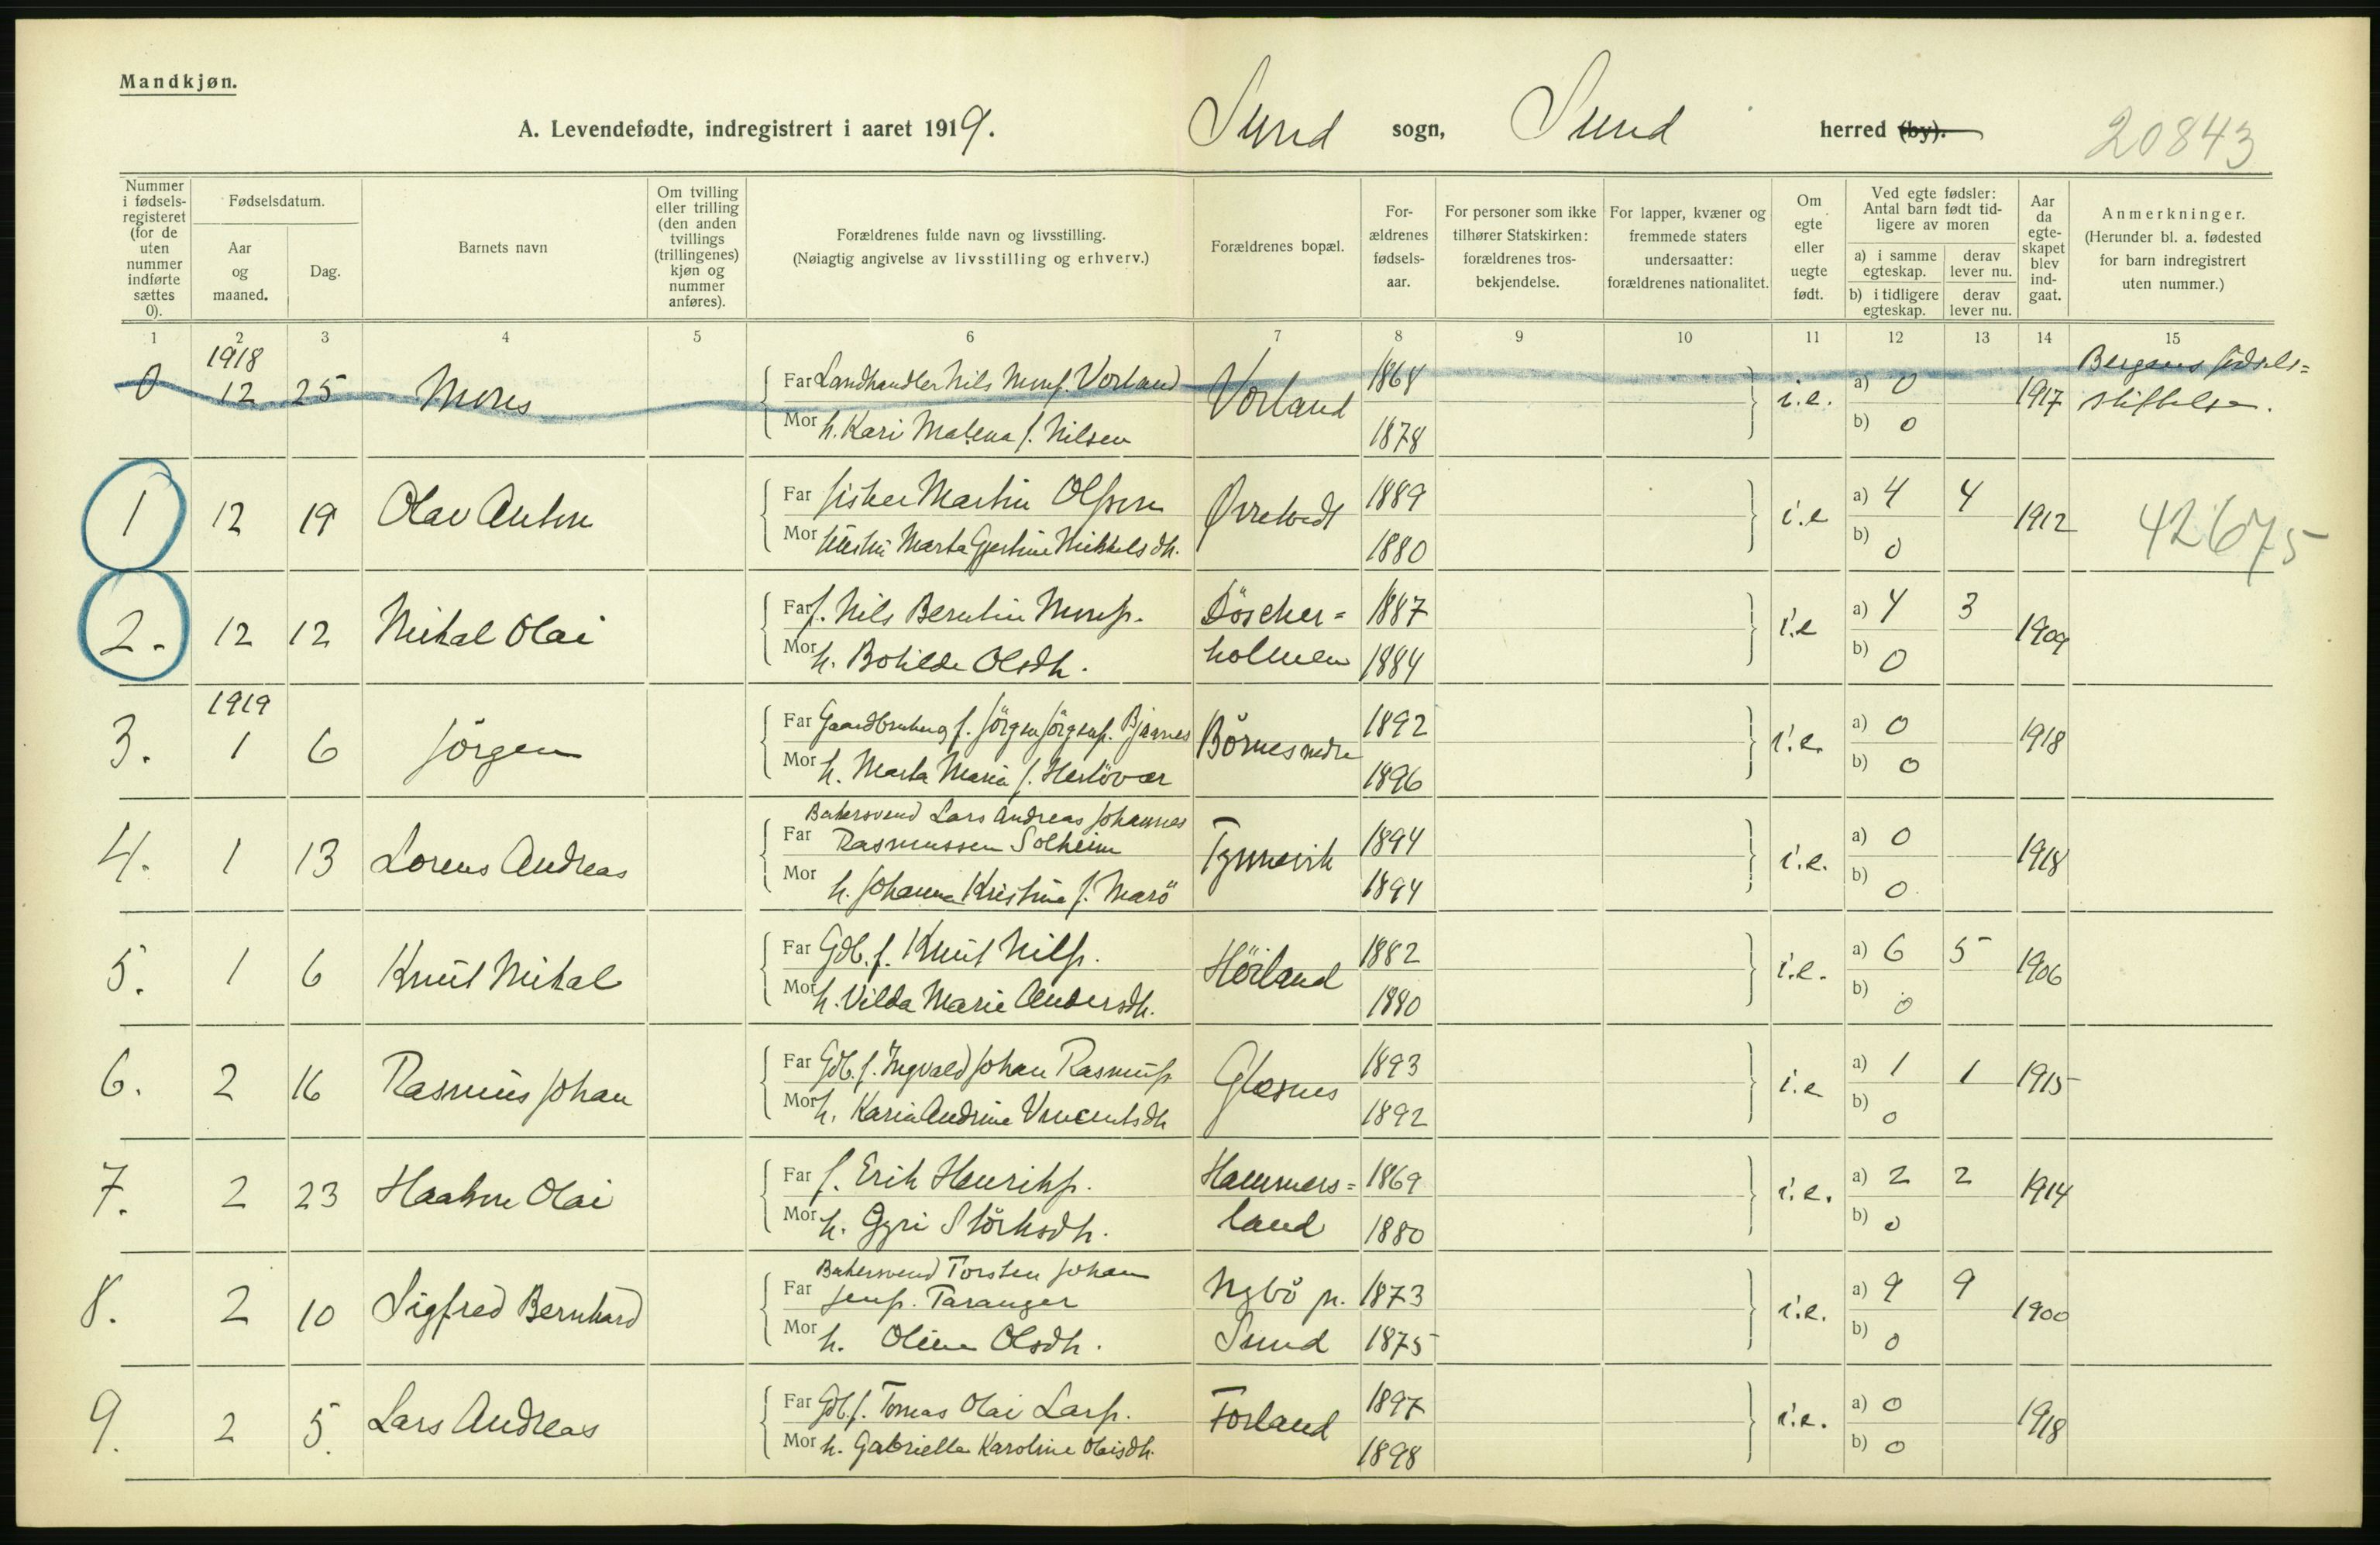 Mandkjøn.
A. Levendefødte, indregistrert i aaret 1919. Sund sogn, Sund herred (by). 20843
Nummer i fødsels-registeret (for de uten nummer indførte sættes 0).
Fødselsdatum.
Aar og maaned.
Dag.
Barnets navn
Om tvilling eller trilling (den anden tvillings (trillingenes) kjøn og nummer anføres).
Forældrenes fulde navn og livsstilling.
(Nøiagtig angivelse av livsstilling og erhverv.)
Forældrenes bopæl.
For-ældrenes fødsels-aar.
For personer som ikke tilhører Statskirken: forældrenes tros-bekjendelse.
For lapper, kvæner og fremmede staters undersaatter: forældrenes nationalitet.
Om egte eller uegte født.
Ved egte fødsler: Antal barn født tid-ligere av moren
a) i samme egteskap. derav lever nu.
b) i tidligere egteskap. derav lever nu.
Aar da egte-skapet blev ind-gaat.
Anmerkninger.
(Herunder bl. a. fødested for barn indregistrert uten nummer.)
1 2 3 4 5 6 7 8 9 10 11 12 13 14 15
1918
0 12 25 Mons Far Landhandler Nils Monss. Vorland Vorland 1868 i.e. a) 0 1917 Bergens fødsels=
Mor h. Kari Malena f. Nilsen 1878 b) 0 stiftelse.
1 12 19 Olav Anton Far fisker Martin Olsson 1889 i.e a) 4 4 1912 42675
Mor hustru Marta Gjertine Mikkelsdtr. 1880 b) 0
2. 12 12 Mikal Olai Far f. Nils Berntin Monss. 1887 i.e a) 4 3 1909
Mor h. Botilde Olsdtr. holmen 1884 b) 0
1919
3. 1 6 Jörgen Far Gaardbruker og f. Jörgen Jörgens. Bjørnes 1892 i.e. a) 0 1918
Mor h. Marta Maria f. Herlövær 1896 b) 0
4. 1 13 Lorens Andreas Bakersvend Lars Andreas Johannes
Far Rasmussen Solheim Tyssevik 1894 i.e. a) 0 1918
Mor h. Johanna Kristine f. Marö 1894 b) 0
5. 1 6 Knut Mikal Far Gdb. f. Knut Nilss. Höiland 1882 i.e. a) 6 5 1906
Mor h. Vilda Marie Andersdtr. 1880 b) 0
6. 2 16 Rasmus Johan Far Gdb. f. Ingvald Johan Rasmuss Glesnes 1893 i.e a) 1 1 1915
Mor h. Karia Andrine Vincentsdtr 1892 b) 0
7. 2 23 Haakon Olai Far f. Erik Henriks. Hammers= 1869 i.e. a) 2 2 1914
Mor h. Gyri Störksdtr. land 1880 b) 0
8. 2 10 Sigfred Bernhard Bakersvend Torsten Johan
Far Jenss. Taranger Nybö pr. 1873 i.e. a) 9 9 1900
Mor h. Oline Olsdtr. Sund 1875 b) 0
9. 2 5. Lars Andreas Far Gdb. f. Tomas Olai Larss. Forland 1897 i.e. a) 0 1918
Mor h. Gabriella Karoline Olaisdtr. 1898 b) 0